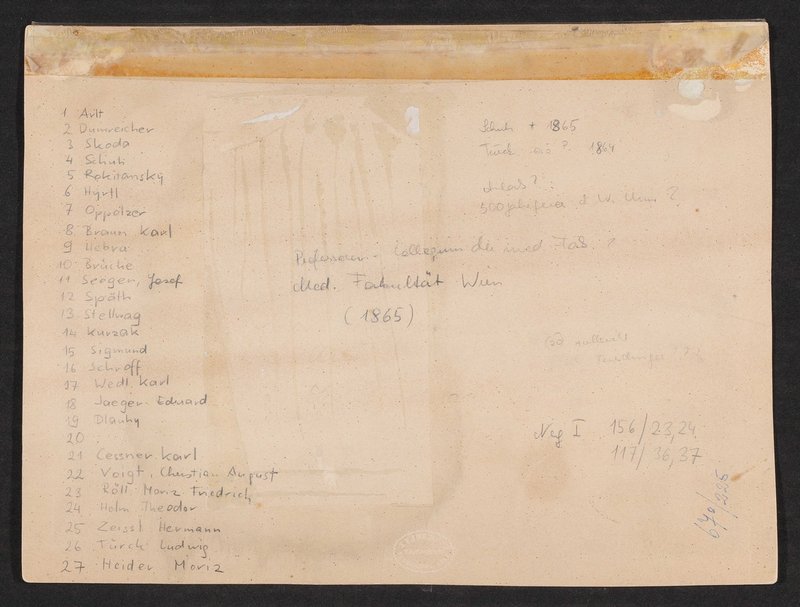 1 Arlt
2 Dumreicher
3 Skoda
4 Schuh
5 Rokitansky
6 Hyrtl
7 Oppolzer
8 Braun Karl
9 Hebra
10 Brücke
11 Seeger, Josef
12 Späth
13 Stellwag
14 Kurzak
15 Sigmund
16 Schroff
17 Wedl, Karl
18 Jaeger. Eduard
19 Dlauhy
20
21 Cessner Karl
22 Voigt, Christian August
23 Röll Moriz Friedrich
24 Helm Theodor
25 Zeissl Hermann
26 Türck Ludwig
27 Heider Moriz
Schuh + 1865
Türck ? 1864
500jahrfeier d W. ?
Professoren-Collegium der med. Fak. ?
Med. Fakultät Wien
(1865)
Neg I 156/23,24
117/36,37